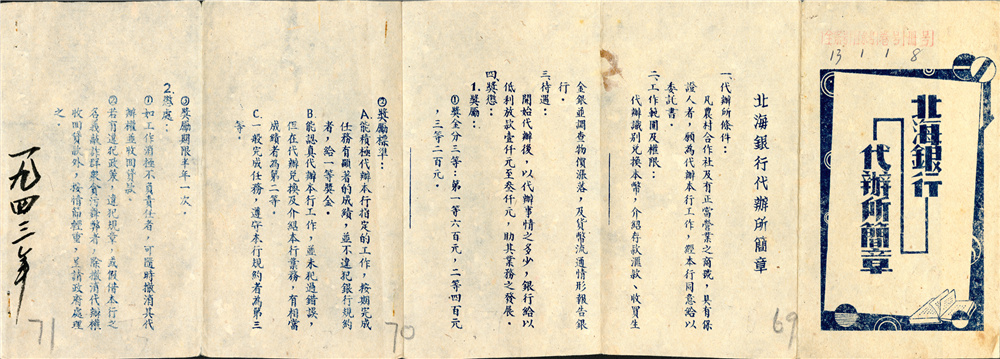 13 1 1 8
北海銀行
代辦所簡章
北海銀行代辦所簡章
一、代辦所條件：
凡農村合作社及有正當營業之商號，具有保
證人者，願為代辦本行工作，經本行同意給以
委託書。
二、工作範圍及權限：
代辦識別兌換本幣，介紹存款滙款、收買生
金銀並調查物價漲落，及貨幣流通情形報告銀
行。
三、待遇：
開始代辦後，以代辦事情之多少，銀行給以
低利放款壹仟元至叁仟元，助其業務之發展。
四、獎懲：
1.獎勵：
①獎金分三等：第一等六百元，二等四百元
，三等二百元。
②獎勵標準：
A.能積極代辦本行指定的工作，按期完成
任務有顯著的成績，並不違犯銀行規約
者，給一等獎金。
B.能認真代辦本行工作，並未犯過錯誤，
在代辦兌換及介紹本行業務，有相當
成績者為第二等。
C.一般完成任務，遵守本行規約者為第三
等。
③獎勵期限半年一次。
2.懲處：
①如工作消極不負責任者，可隨時撤消其代
辦權並收回貸款。
②若有違犯政策，違犯規章，或假借本行之
名義敲詐群眾貪污舞弊者，除撤消代辦權
收回貸款外，按情節輕重，呈請政府處理
之。
一九四三年
69
70
71